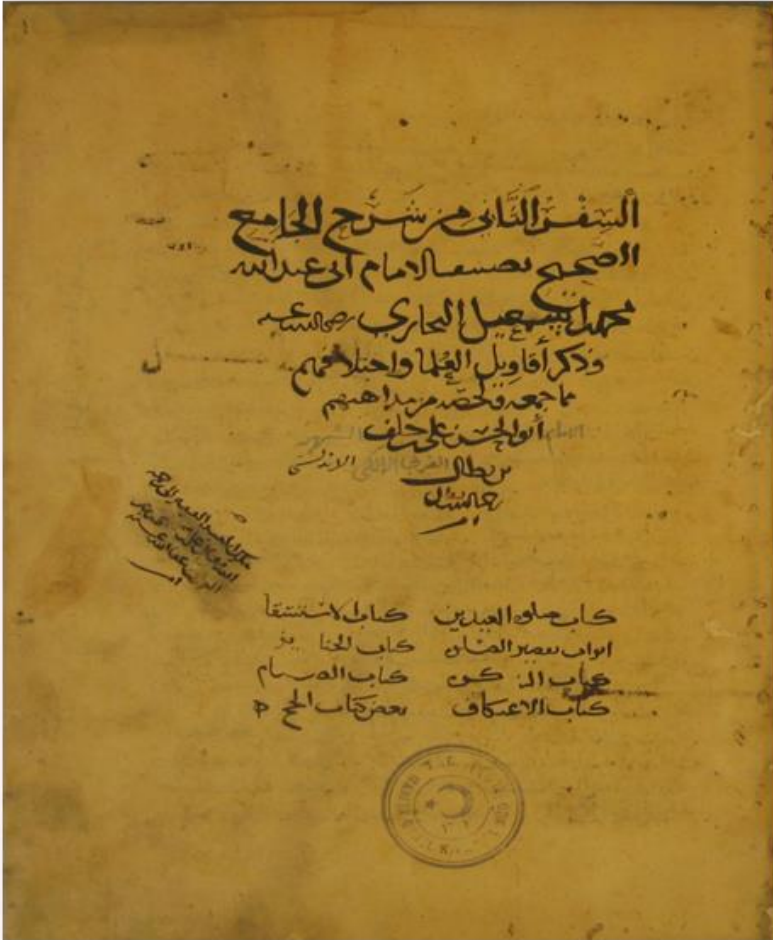 السفر الثاني من شرح الجامع
الصحيح تصنيف الامام ابي عبد الله
محمد بن اسمعيل البخاري رضي الله عنه
وذكر أقاويل العلما واختلافهم
مما جمعه ولخصه من مذاهبهم
أبو الحسن علي بن خلف الشهير
بن بطال القرطبي المالكي الاندلسي
رحمه الله تعالى
كتاب صلاة العيدين كتاب الاستسقا
ابواب تقصير الصلاة كتاب الجنايز
كتاب الزكوة كتاب الصيام
كتاب الاعتكاف بعض كتاب الحج